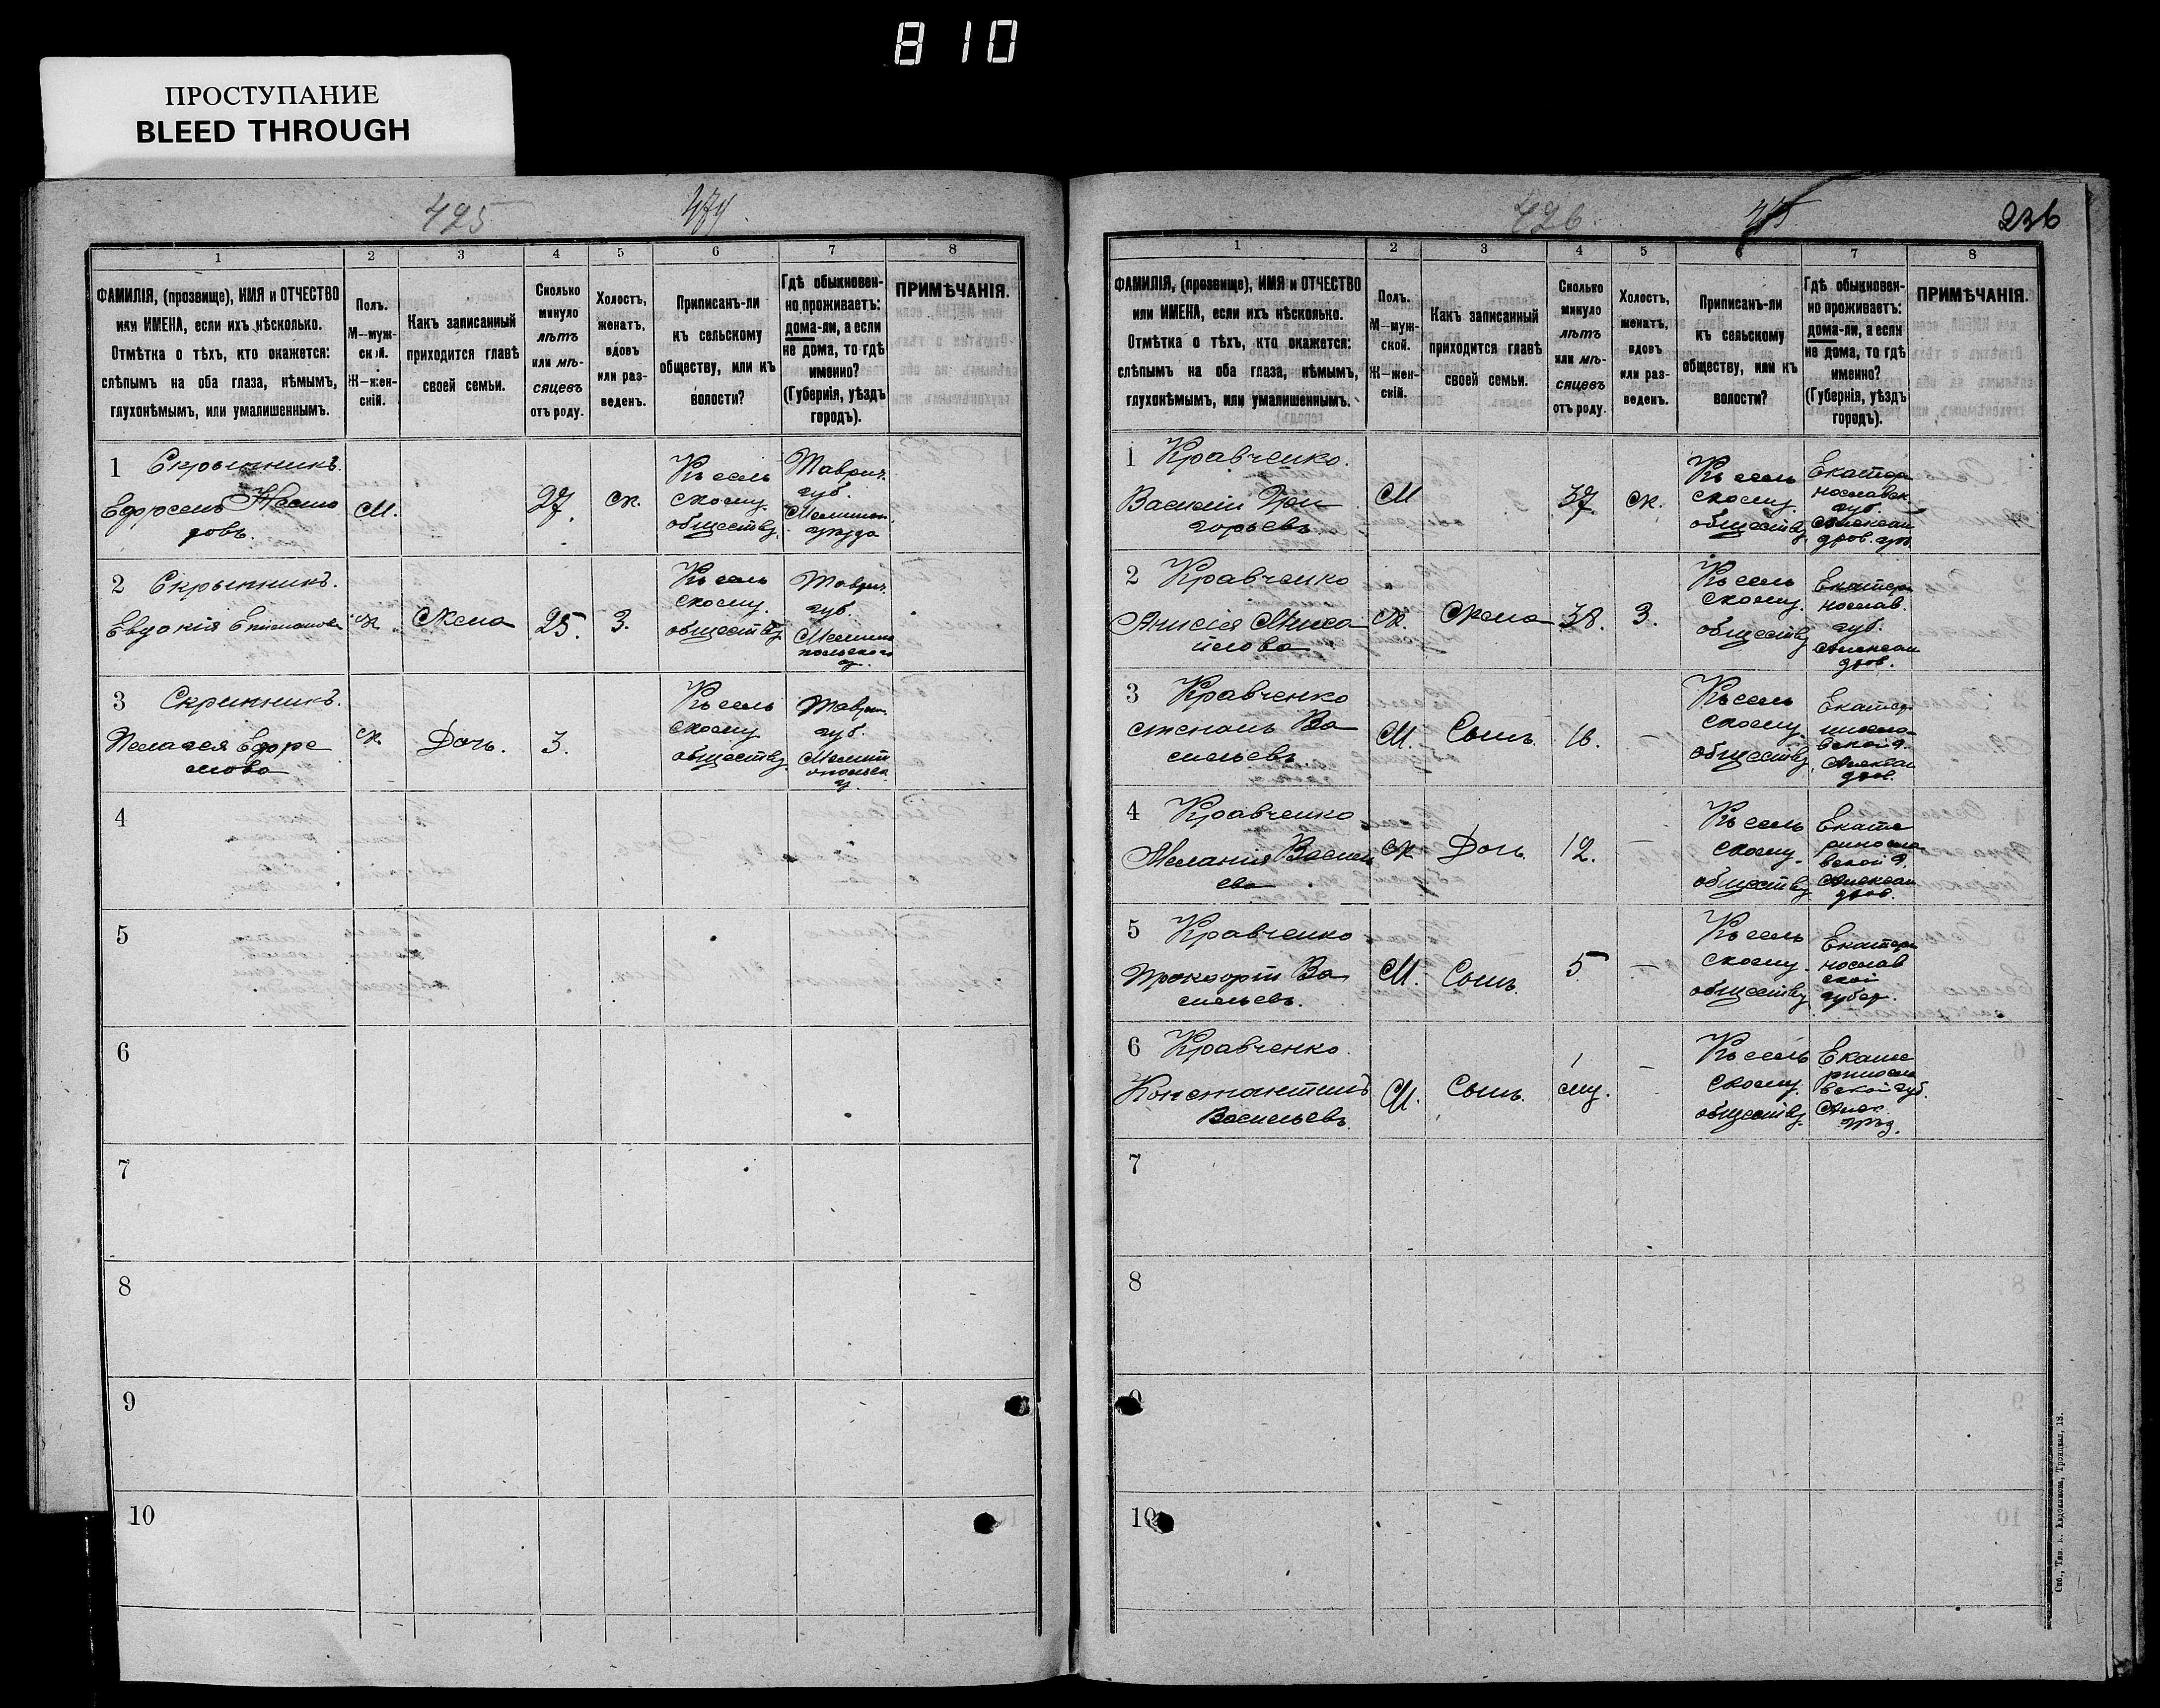 810
ПРОСТУПАНИЕ
BLEED THROUGH
425
1 2 3 4 5 6 7 8
ФАМИЛІЯ, (прозвище), ИМЯ и ОТЧЕСТВО
или ИМЕНА, если ихъ нѣсколько.
Отмѣтка о тѣхъ, кто окажется:
слѣпымъ на оба глаза, нѣмымъ,
глухонѣмымъ, или умалишеннымъ.
Полъ.
М—муж-
ской.
Ж—жен-
скій.
Какъ записанный
приходится главѣ
своей семьи.
Сколько
минуло
лѣтъ
или мѣ-
сяцевъ
отъ роду.
Холостъ,
женатъ,
вдовъ
или раз-
веденъ.
Приписанъ-ли
къ сельскому
обществу, или къ
волости?
Гдѣ обыкновен-
но проживаетъ:
дома-ли, а если
не дома, то гдѣ
именно?
(Губернія, уѣздъ
городъ).
ПРИМѢЧАНІЯ.
1 Скрынникъ.
М.
27.
ж.
Къ сель
скому
обществу.
Таврич.
губ.
уѣзда
2 Скрынникъ.
Евдокія
ж.
Жена
25.
3.
Къ сель
скому
обществу
Таврич.
губ.
Мелито
польскаго
у.
3 Скринникъ.
Пелагея
ж.
Дочь.
3.
Къ сель
скому
обществу.
Таврич.
губ.
у.
4
5
6
7
8
9
10
426
236
1 2 3 4 5 6 7 8
ФАМИЛІЯ, (прозвище), ИМЯ и ОТЧЕСТВО
или ИМЕНА, если ихъ нѣсколько.
Отмѣтка о тѣхъ, кто окажется:
слѣпымъ на оба глаза, нѣмымъ,
глухонѣмымъ, или умалишеннымъ.
Полъ.
М—муж-
ской.
Ж—жен-
скій.
Какъ записанный
приходится главѣ
своей семьи.
Сколько
минуло
лѣтъ
или мѣ-
сяцевъ
отъ роду.
Холостъ,
женатъ,
вдовъ
или раз-
веденъ.
Приписанъ-ли
къ сельскому
обществу, или къ
волости?
Гдѣ обыкновен-
но проживаетъ:
дома-ли, а если
не дома, то гдѣ
именно?
(Губернія, уѣздъ
городъ).
ПРИМѢЧАНІЯ.
1 Кравченко.
Василій Гри
горьевъ
М
37.
ж.
Къ сель
скому
обществу
Екатери
нославск.
губ.
Александ
дров. уѣз
2 Кравченко
Анисія Миха
йлова
ж.
Жена
38.
3.
Къ сель
скому.
обществу
Екатери
нослав.
губ.
Алексан
дров.
3 Кравченко
степанъ Ва
сильевъ.
М.
Сынъ.
16.
—
Къ сель
скому
обществу.
Екатер.
иносла
вской г.
Алексан
дров.
4 Кравченко
Меланія Василь
ева
ж
Дочь.
12.
—
Къ сель
скому
обществу
Екате
риносла
вской г.
Алексан
дров.
5 Кравченко
Прокофій Ва
сильевъ.
М.
Сынъ.
5
—
Къ сель
скому
обществу
Екатери
нослав
ской
губер.
6 Кравченко.
Константинъ
Васильевъ.
М.
Сынъ.
1
мц.
—
Къ сель
скому.
обществу.
Екате
риносла
вской губ.
Алек.
уѣзд.
7
8
9
10
Спб., Тип. Евдокимова, Троицкая, 18.